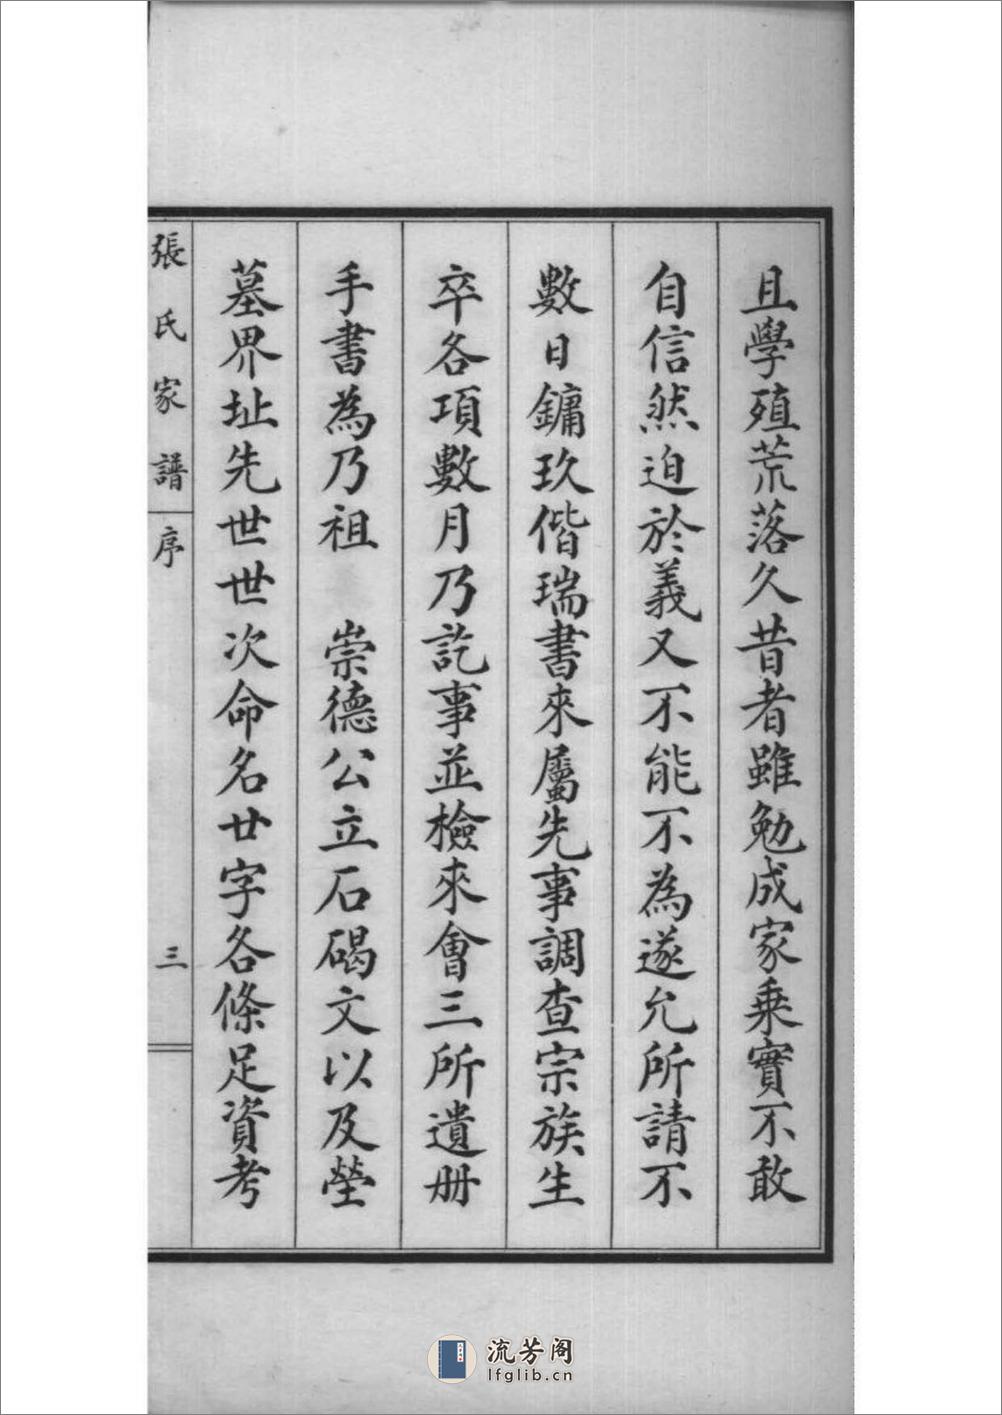 且學殖荒落久昔者雖勉成家乘實不敢
自信然迫於義又不能不為遂允所請不
數日鏞玖偕瑞書來屬先事調查宗族生
卒各項數月乃訖事並檢來會三所遺册
手書為乃祖 崇德公立石碣文以及塋
墓界址先世世次命名廿字各條足資考
張氏家譜 序 三
流芳阁
lfglib.cn